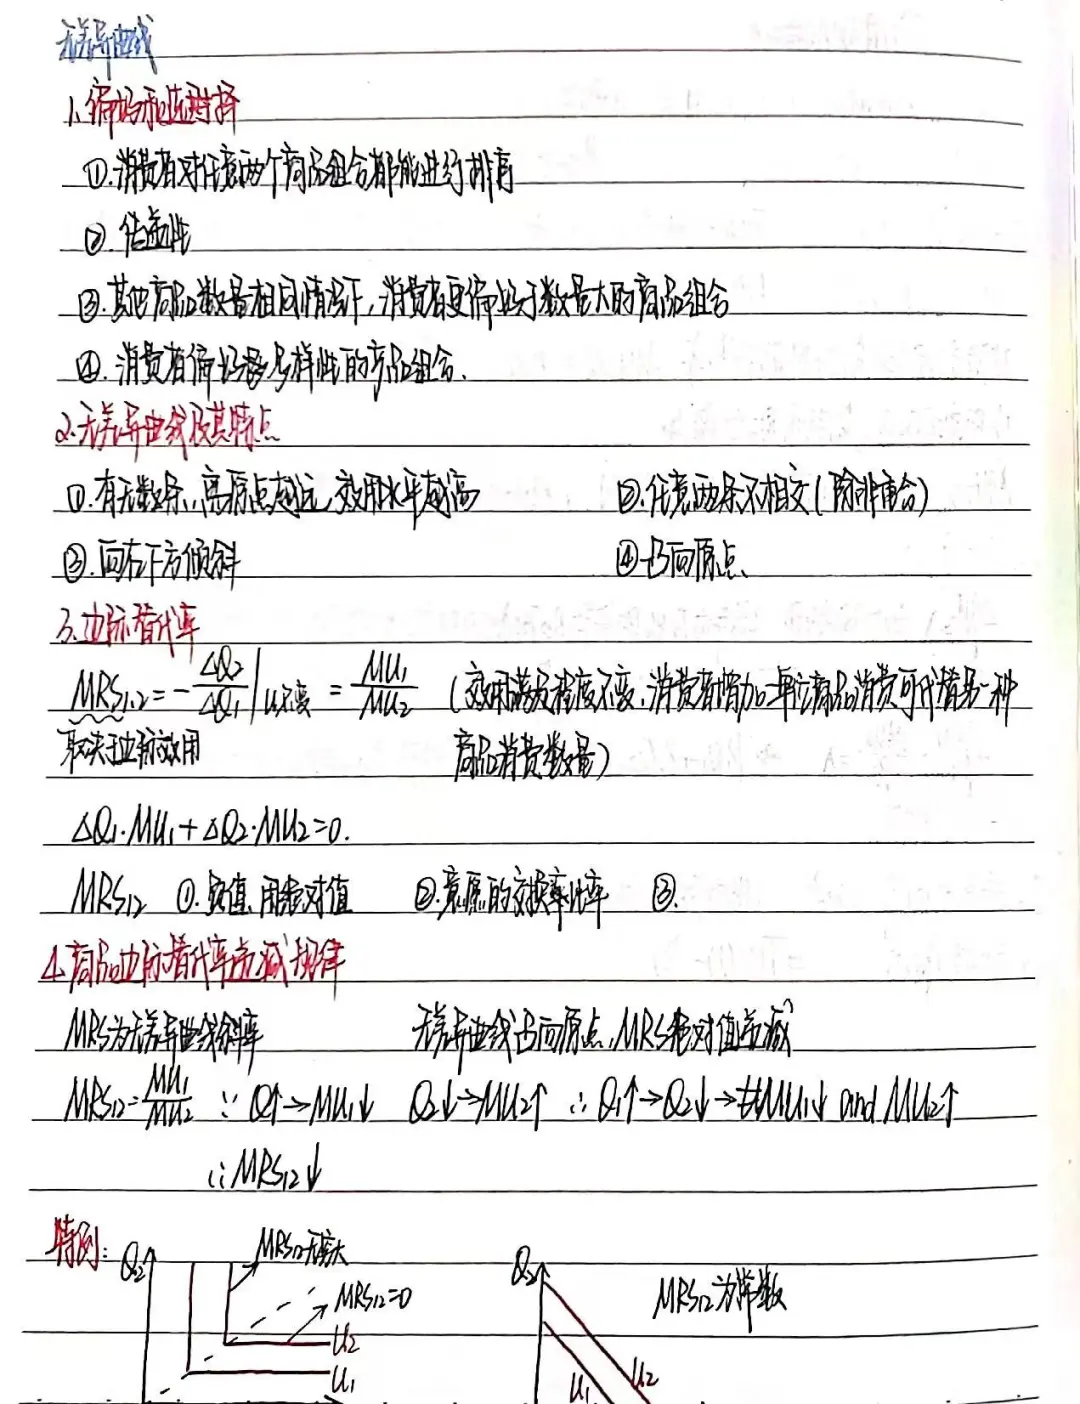 无差异曲线
1. 偏好和选择
①.消费者对任意两个商品组合都能进行排序
②. 传递性
③.其他商品数量相同情况下,消费者更偏好于数量大的商品组合
④.消费者偏好多样性的商品组合.
2.无差异曲线及其特点
①.有无数条,离原点越远,效用水平越高 ②.任意两条不相交(除非重合)
③.向右下方倾斜 ④凸向原点.
3.边际替代率
MRS₁₂=-ΔQ₂/ΔQ₁|u不变 = MU₁/MU₂ (效用满足程度不变,消费者增加一单位商品消费可代替另一种
取决于边际效用 商品消费数量)
ΔQ₁·MU₁+ΔQ₂·MU₂=0.
MRS₁₂ ①.负值,用绝对值 ②.意愿的交换率比率 ③.
4.商品边际替代率递减规律
MRS为无差异曲线斜率 无差异曲线凸向原点,MRS绝对值递减
MRS₁₂=MU₁/MU₂ ∵ Q₁↑→MU₁↓ Q₂↓→MU₂↑ ∴ Q₁↑→Q₂↓→MU₁↓ and MU₂↑
∴MRS₁₂↓
特例: Q₂ MRS₁₂无穷大 Q₂ MRS₁₂为常数
MRS₁₂=0
U₂
U₁ U₁ U₂